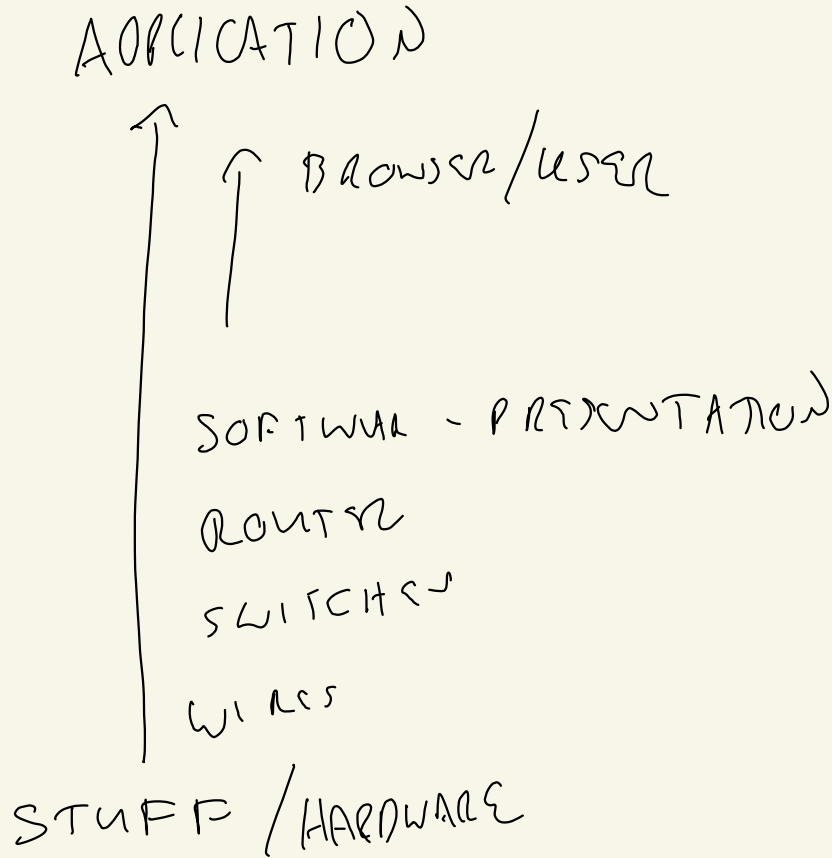 APPLICATION
BROWSER/USER
SOFTWAR - PRESENTATION
ROUTER
SWITCHES
WIRES
STUFF/HARDWARE